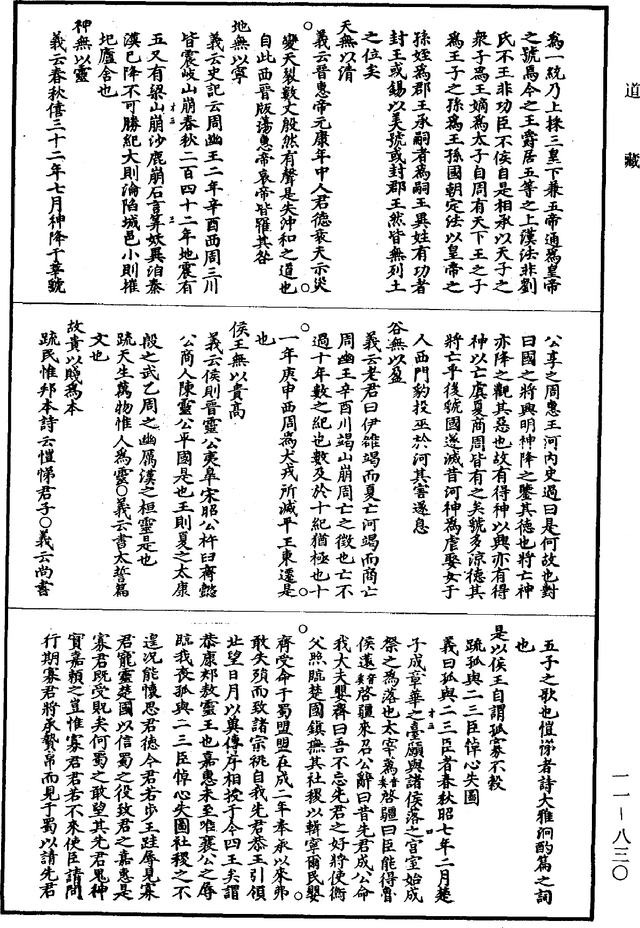 道藏
為一統乃上採三皇下兼五帝通為皇帝
之號為今之王爵居五等之上漢法非劉
氏不王非功臣不侯自是相承以天子之
衆子為王嫡為太子自周有天下王之子
為王子之孫為王孫國朝定法以皇帝之
孫姪為郡王承嗣者為嗣王異姓有功者
封王或錫以美號或封郡王然皆無列土
之位矣
天無以清
義云晉惠帝元康年中人君德衰天示災
變天裂數丈殷然有聲是失沖和之道也
自此西晉版蕩惠帝哀帝皆罹其咎
地無以寧
義云史記云周幽王二年辛酉西周三川
皆震岐山崩春秋二百四十二年地震有
五又有梁山崩沙鹿崩石言等妖異洎秦
漢已降不可勝紀大則淪陷城邑小則摧
圮廬舍也
神無以靈
義云春秋僖三十二年七月神降于莘虢
公享之周惠王河內史過曰是何故也對
曰國之將興明神降之鑒其德也將亡神
亦降之觀其惡也故有得神以興亦有得
神以亡虞夏商周皆有之矣虢多涼德其
將亡乎後虢國遂滅昔河神為虐娶女于
人西門豹投巫於河其害遂息
谷無以盈
義云老君曰伊雒竭而夏亡河竭而商亡
周幽王辛酉川竭山崩周亡之徵也亡不
過十年數之紀也數及於十紀猶極也十
一年庚申西周為犬戎所滅平王東遷是
也
侯王無以貴高
義云侯則晉靈公夷臯宋昭公杵臼齊懿
公商人陳靈公平國是也王則夏之太康
殷之武乙周之幽厲漢之桓靈是也
疏天生萬物惟人為靈○義云書太誓篇
文也
故貴以賤為本
疏民惟邦本詩云愷悌君子○義云尚書
五子之歌也愷悌者詩大雅泂酌篇之詞
也
是以侯王自謂孤寡不穀
疏孤與二三臣悼心失圖
義曰孤與二三臣者春秋昭七年二月楚
子成章華之臺願與諸侯落之宮室始成
祭之為落也太宰薳啓疆曰臣能得魯
侯遠啓疆來召公辭曰昔先君成公命
我大夫嬰齊曰吾不忘先君之好將使衡
父照臨楚國鎮撫其社稷以輯寧爾民嬰
齊受命于蜀盟盟在成二年奉承以來弗
敢失殞而致諸宗祧自我先君恭王引領
北望日月以冀傳序相授于今四王矣謂
恭康郟敖靈王也嘉惠未至唯襄公之辱
臨我喪孤與二三臣悼心失圖社稷之不
遑況能懷思君德今君若步王趾辱見寡
君寵靈楚國以信蜀之役致君之嘉惠是
寡君既受貺矣何蜀之敢望其先君鬼神
實嘉賴之豈惟寡君君若不來使臣請問
行期寡君將承贄帛而見于蜀以請先君
一一—八三〇